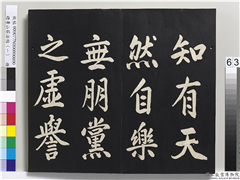 知有天
然自樂
無朋黨
之虛譽
63